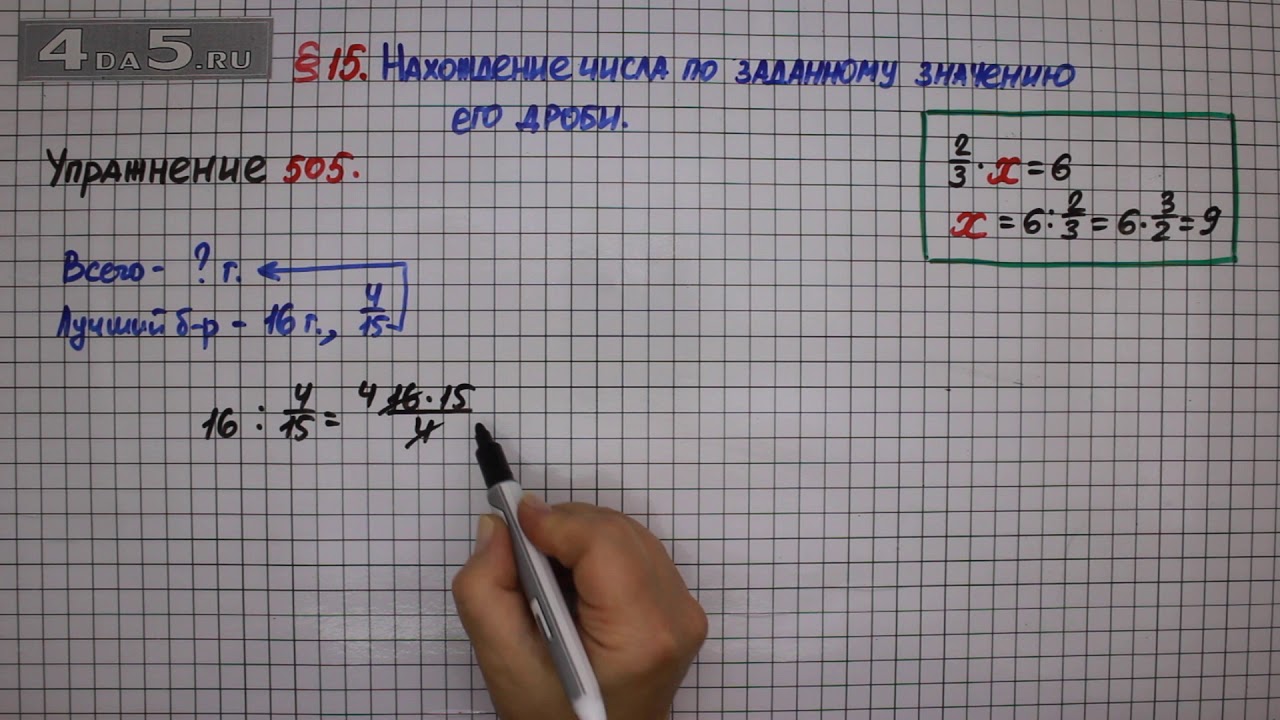 4DA5.RU
§ 15. Нахождение числа по заданному значению
его дроби.
Упражнение 505.
2/3 · x = 6
x = 6 : 2/3 = 6 · 3/2 = 9
Всего - ? г.
Лучший б-р - 16 г., 4/15
16 : 4/15 = 4 16 · 15 / 4